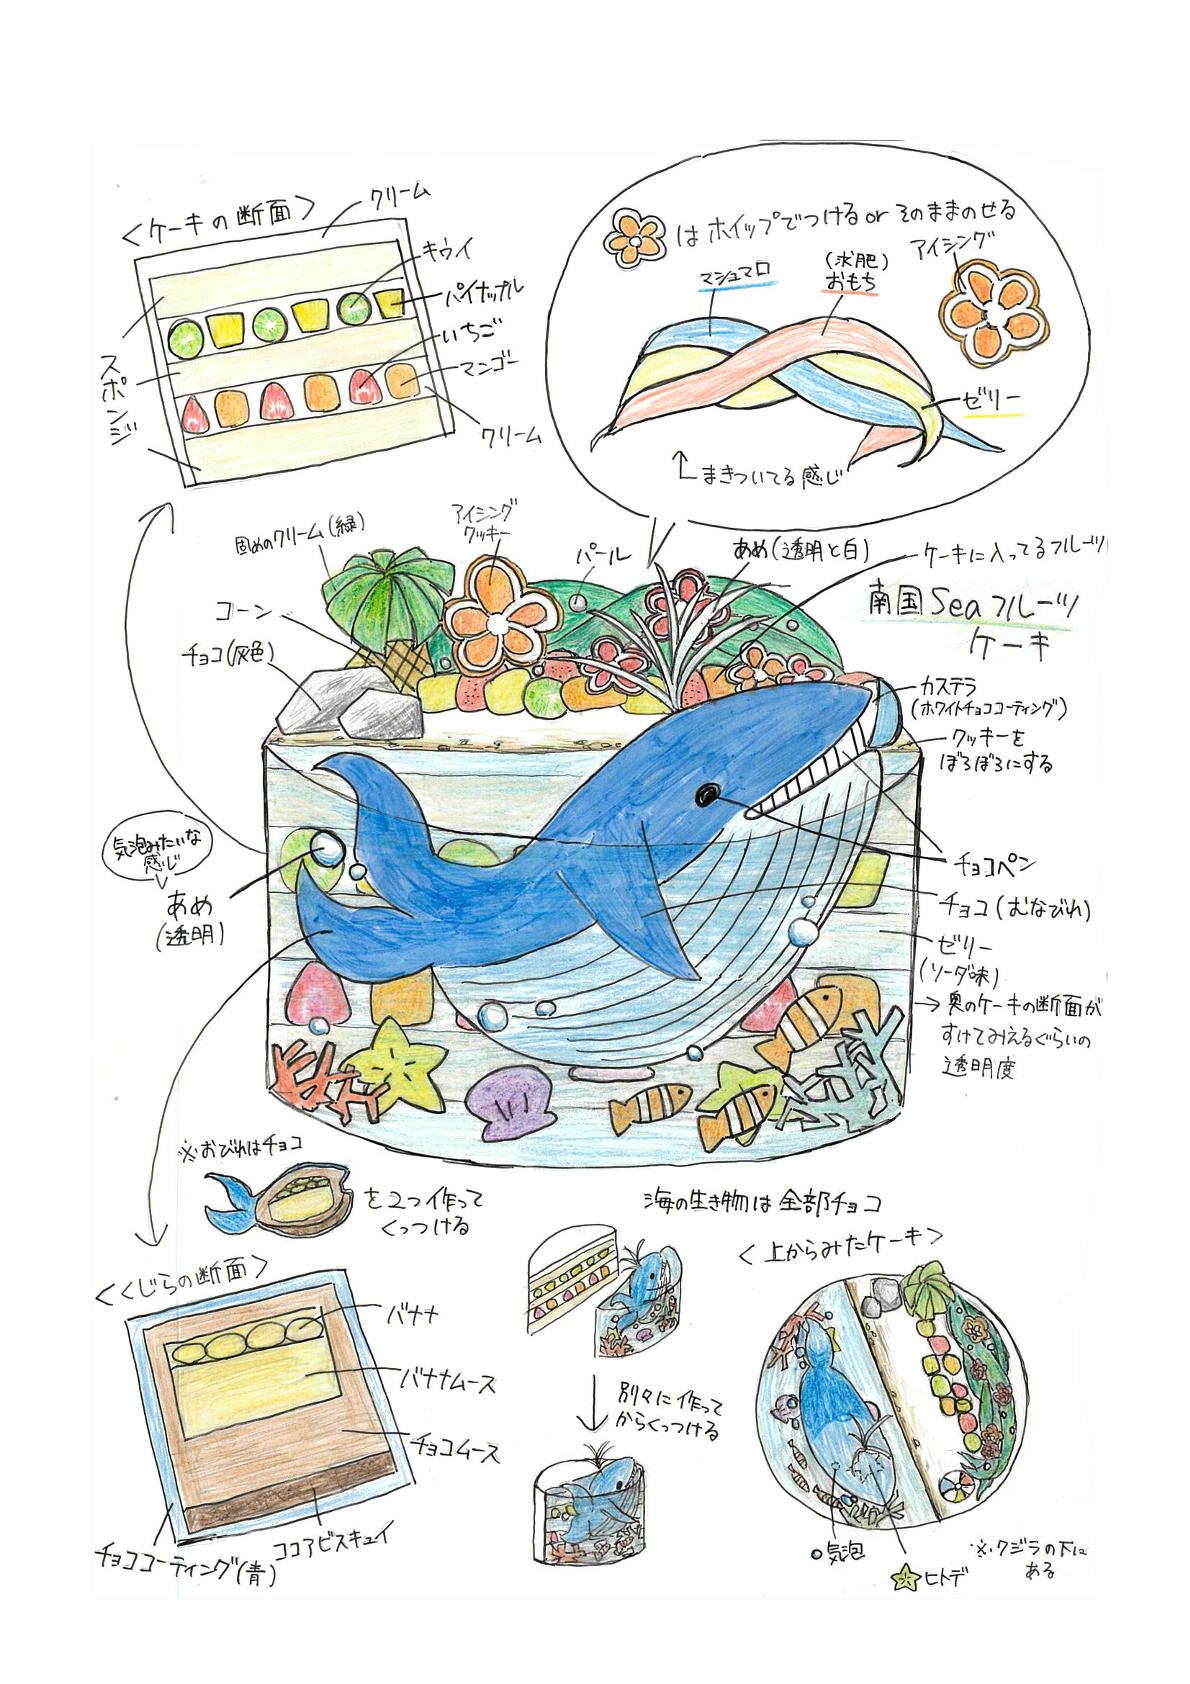 <ケーキの断面>
クリーム
キウイ
パイナップル
いちご
マンゴー
クリーム
スポンジ
はホイップでつける or そのままのせる
アイシング
マシュマロ
(求肥)
おもち
ゼリー
まきついてる感じ
固めのクリーム(緑)
アイシング
クッキー
パール
あめ(透明と白)
ケーキに入ってるフルーツ
南国Seaフルーツ
ケーキ
コーン
チョコ(灰色)
カステラ
(ホワイトチョココーティング)
クッキーを
ぼろぼろにする
気泡みたいな
感じ
あめ
(透明)
チョコペン
チョコ(むなびれ)
ゼリー
(ソーダ味)
→奥のケーキの断面が
すけてみえるぐらいの
透明度
※おびれはチョコ
を2つ作って
くっつける
海の生き物は全部チョコ
<上からみたケーキ>
<くじらの断面>
バナナ
バナナムース
チョコムース
ココアビスキュイ
チョココーティング(青)
別々に作って
からくっつける
気泡
ヒトデ
※クジラの下に
ある